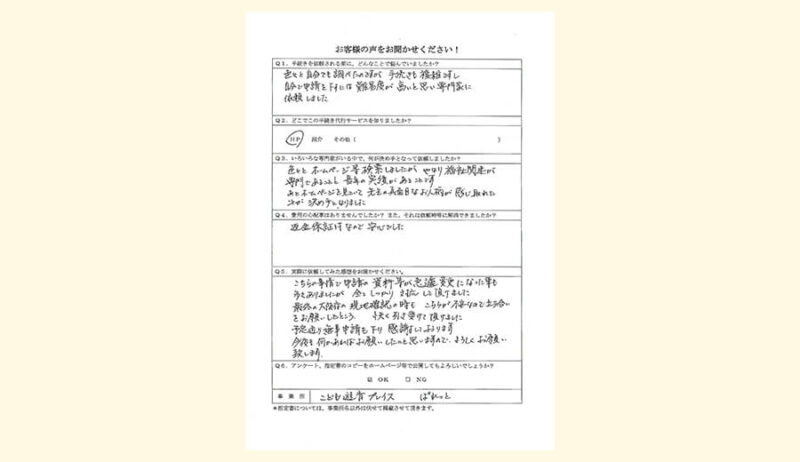 お客様の声をお聞かせください！
Q1．手続きを依頼される前に、どんなことで悩んでいましたか？
色々と自分でも調べたのですが 手続きも複雑ですし
自分で申請を下すには 難易度が高いと思い専門家に
依頼しました
Q2．どこでこの手続き代行サービスを知りましたか？
HP 紹介 その他（ ）
Q3．いろいろな専門家がいる中で、何が決め手となって依頼しましたか？
色々と ホームページ等検索しましたが やはり福祉関連が
専門であることと 長年の実績があることです
あとホームページを見ていて 先生の真面目なお人柄が 感じ取れた
ことが 決め手となりました
Q4．費用の心配事はありませんでしたか？また、それは依頼時等に解消できましたか？
返金保証付なので 安心でした
Q5．実際に依頼してみた感想をお聞かせください。
こちらの事情で申請の 資料等が急遽変更になった事も
ありましたが 全て しっかり 対応して頂けました
最終の大阪府の 現地確認の時も こちらが不安なので立ち合い
をお願いしたところ、 快く引き受けて頂けました
予定通り無事申請も下り 感謝しております
今後も何かあればお願いしたいと思いますので、よろしくお願い
致します。
Q6．アンケート、指定書のコピーをホームページ等で公開してもよろしいでしょうか？
☑ OK ☐ NG
事業所 こども遊育プレイス ぱれっと
＊指定書については、事業所名以外は伏せて掲載させて頂きます。